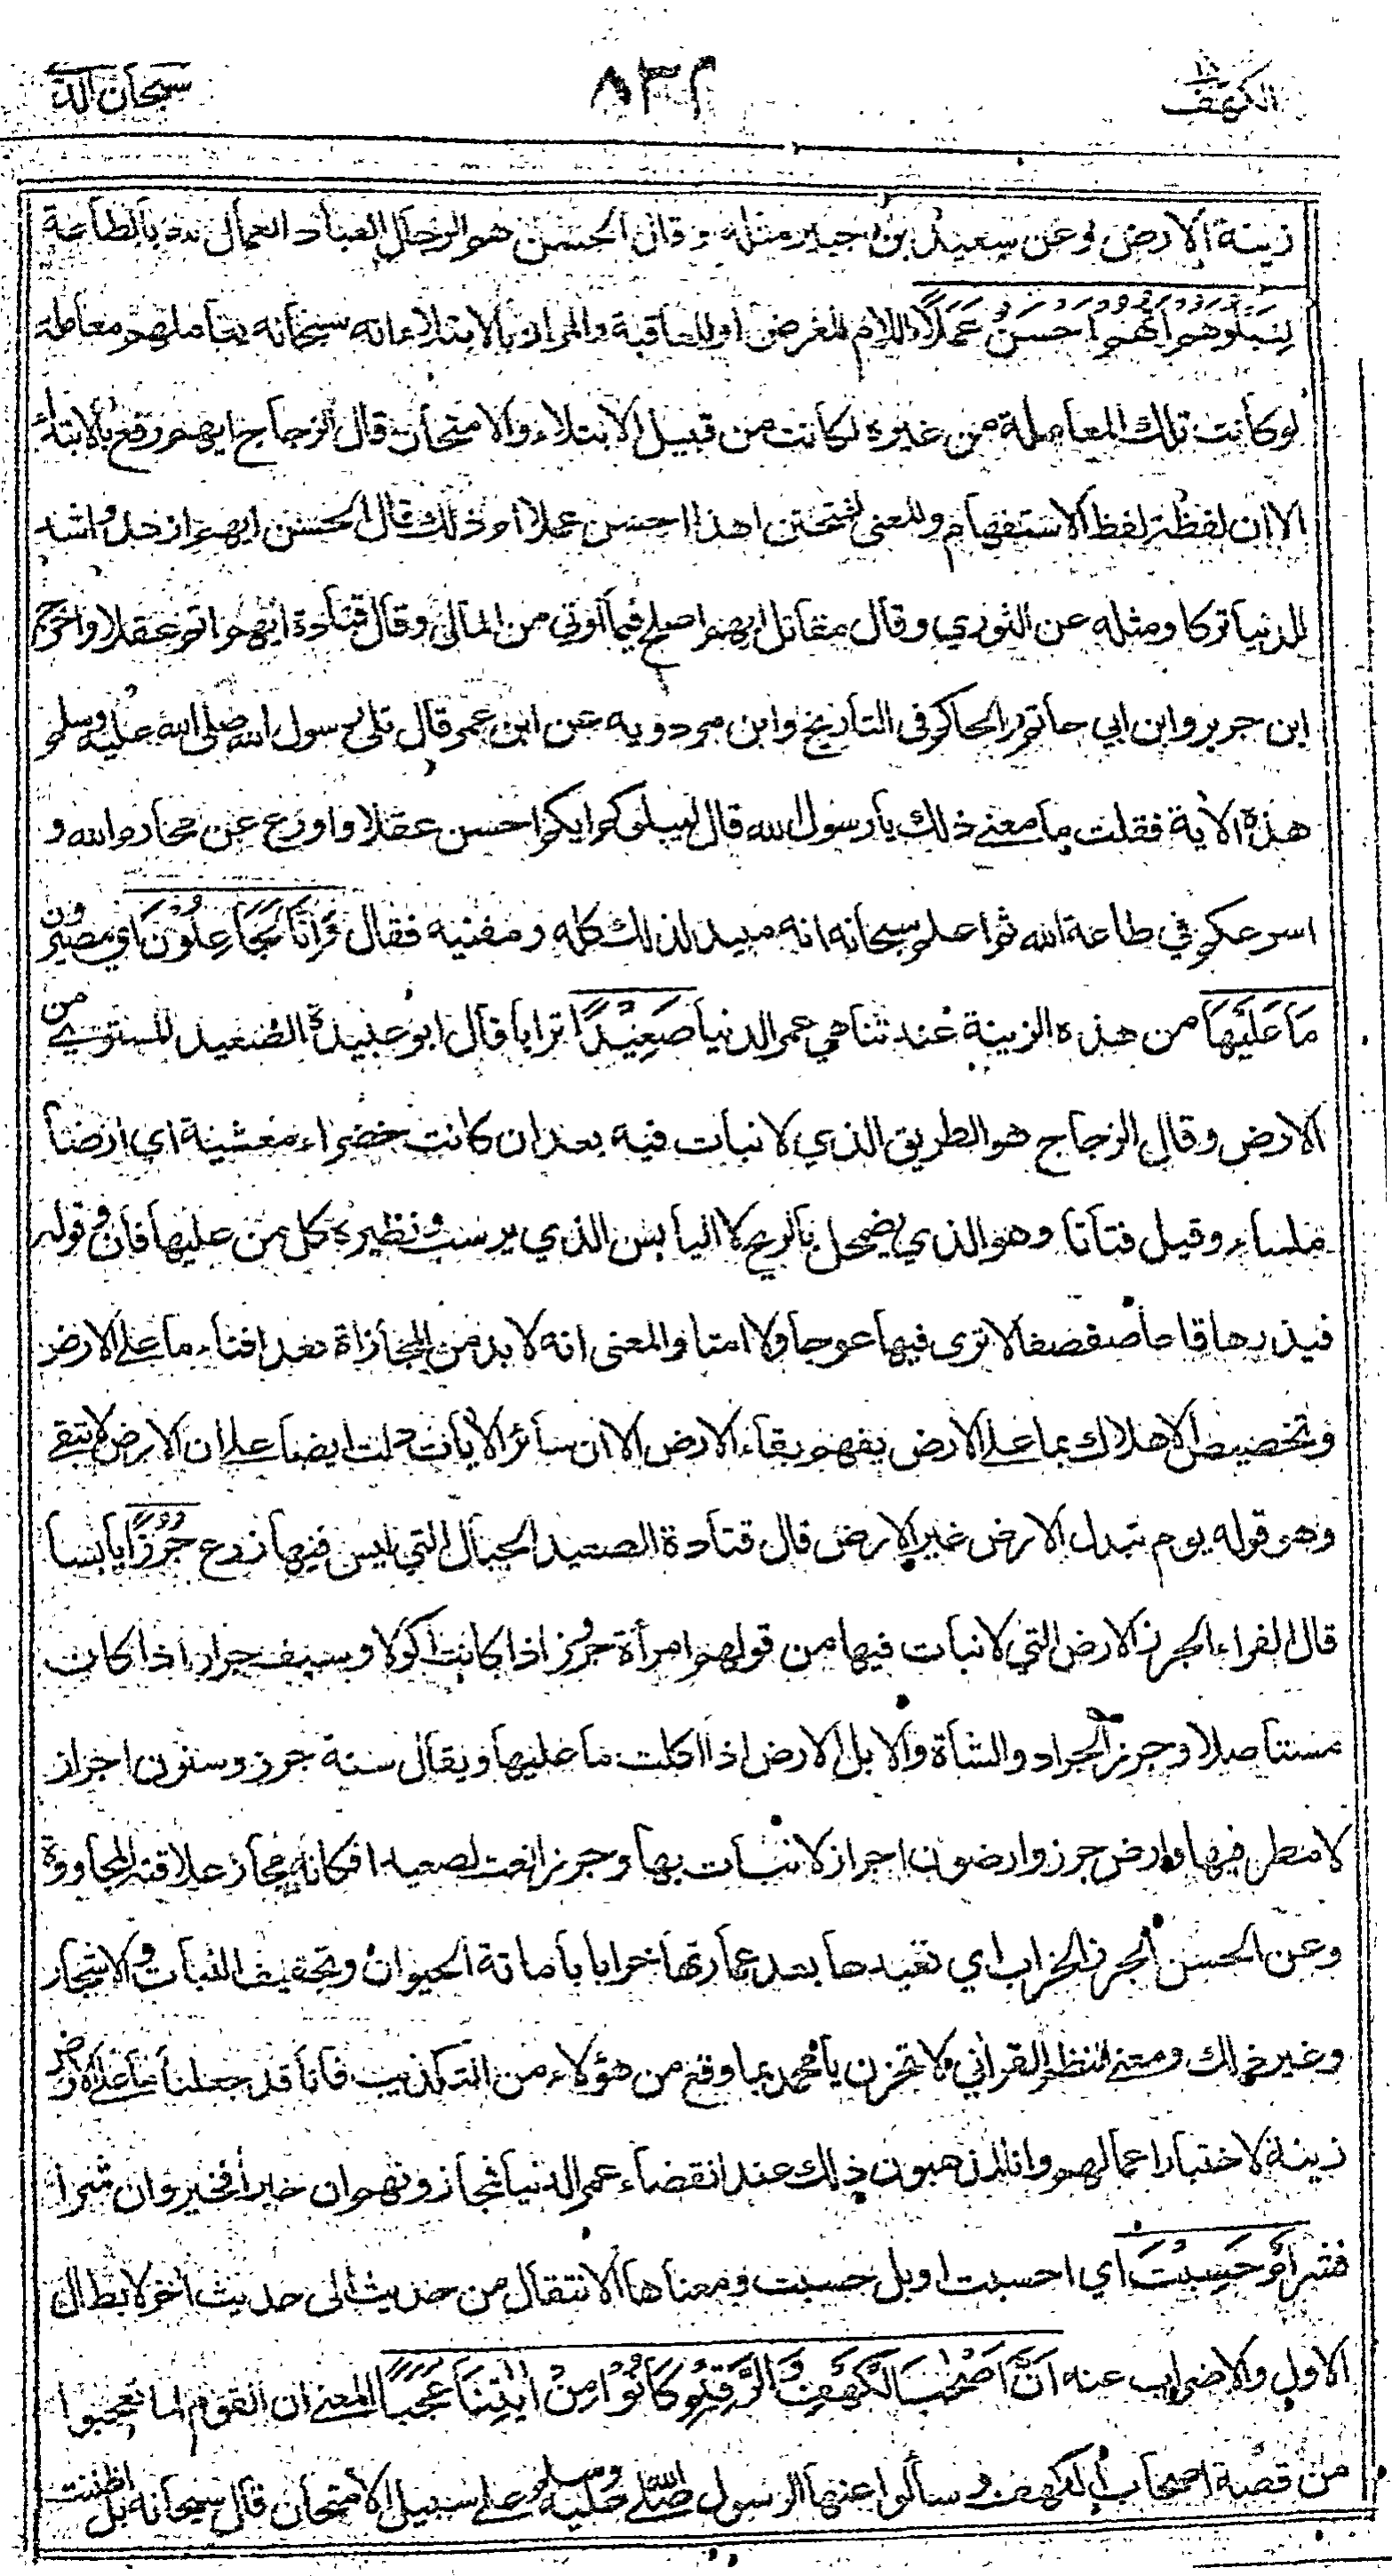 الكهف ١٨
٨٣٢
سبحان الذي
زينة الارض وعن سعيد بن جبير مثله وقال الحسن هو الرجال العباد العمال لله بالطاعة
لِنَبْلُوَهُمْ اَيُّهُمْ اَحْسَنُ عَمَلًا اللام للغرض او للعاقبة والمراد بالابتلاء انه سبحانه يعاملهم معاملة
لو كانت تلك المعاملة من غيره لكانت من قبيل الابتلاء والامتحان قال الزجاج ايهم رفع بالابتداء
الا ان لفظه لفظ الاستفهام والمعنى لنمتحن اهذا احسن عملا ام ذلك قال الحسن ايهم ازهد واشد
للدنيا تركا ومثله عن الثوري وقال مقاتل ايهم اصلح فيما اوتي من المال وقال قتادة ايهم اتم عقلا واخرج
ابن جرير وابن ابي حاتم والحاكم في التاريخ وابن مردويه عن ابن عمر قال تلى رسول الله صلى الله عليه وسلم
هذه الاية فقلت ما معنى ذلك يا رسول الله قال ليبلوكم ايكم احسن عقلا واورع عن محارم الله و
اسرعكم في طاعة الله ثم اعلم سبحانه انه مبيد لذلك كله ومفنيه فقال وَاِنَّا لَجَاعِلُوْنَ اي مصيرون
مَا عَلَيْهَا من هذه الزينة عند تناهي عمر الدنيا صَعِيْدًا ترابا قال ابو عبيدة الصعيد المستوي من
الارض وقال الزجاج هو الطريق الذي لا نبات فيه بعد ان كانت خضراء معشبة اي ارضا
ملساء وقيل فتاتا وهو الذي يضمحل بالريح لا اليابس الذي يرسب ونظيره كل من عليها فان وقوله
فيذرها قاعا صفصفا لا ترى فيها عوجا ولا امتا والمعنى انه لا بد من المجازاة بعد افناء ما على الارض
وتخصيص الاهلاك بما على الارض يفهم بقاء الارض الا ان سائر الايات دلت ايضا على ان الارض لا تبقى
وهو قوله يوم تبدل الارض غير الارض قال قتادة الصعيد الجبال التي ليس فيها زرع جُرُزًا يابسا
قال الفراء الجرز الارض التي لا نبات فيها من قولهم امرأة جرز اذا كانت اكولا وسيف جراز اذا كان
مستاصلا وجرز الجراد والشاة والابل الارض اذا اكلت ما عليها ويقال سنة جرز وسنون اجراز
لا مطر فيها وارض جرز وارضون اجراز لا نبات بها وجرزا نعت لصعيدا فكانه مجاز علاقته المجاورة
وعن الحسن الجرز الخراب اي نعيدها بعد عمارتها خرابا باماتة الحيوان وتجفيف النبات والاشجار
وغير ذلك ومعنى النظم القرآني لا تحزن يا محمد بما وقع من هؤلاء من التكذيب فانا قد جعلنا ما على الارض
زينة لاختبار اعمالهم وانا لمذهبون ذلك عند انقضاء عمر الدنيا فمجازوهم ان خيرا فخير وان شرا
فشر اَمْ حَسِبْتَ اي احسبت او بل حسبت ومعناها الانتقال من حديث الى حديث اخر لا بطال
الاول والاضراب عنه اَنَّ اَصْحٰبَ الْكَهْفِ وَالرَّقِيْمِ كَانُوْا مِنْ اٰيٰتِنَا عَجَبًا المعنى ان القوم لما تعجبوا
من قصة اصحاب الكهف وسألوا عنها الرسول صلى الله عليه وسلم على سبيل الامتحان قال سبحانه بل اظننت